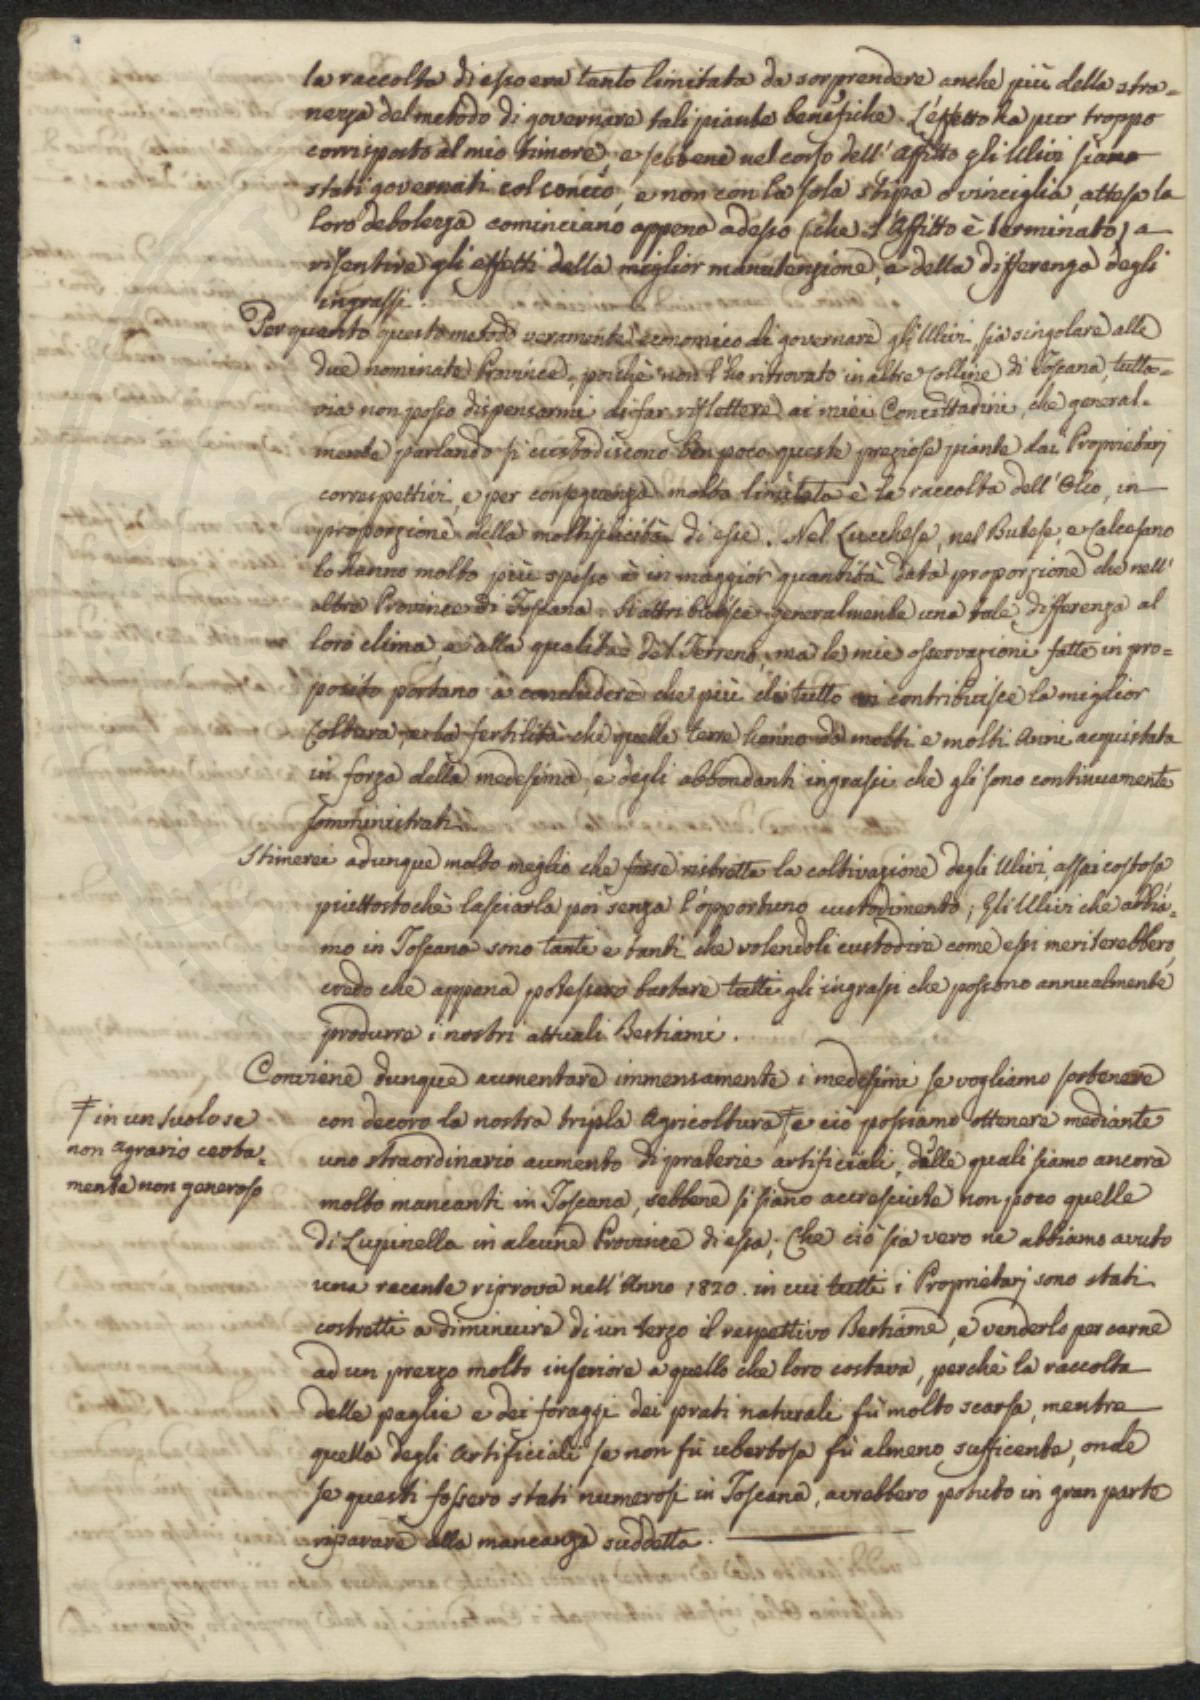 la raccolta di essa era tanto limitata da sorprendere anche più della stra=
nezza del metodo di governare tali piante benefiche. L'effetto ha pur troppo
corrisposto al mio timore, e sebbene nel corso dell'Affitto gli Ulivi siano
stati governati col concio, e non con la sola stipa o vinciglia, attesa la
loro debolezza cominciano appena adesso (che l'Affitto è terminato) a
risentire gli effetti della miglior manutenzione, e della differenza degli
ingrassi.
Per quanto questo metodo veramente economico di governare gli Ulivi sia singolare alle
due nominate Province, poichè non l'ho ritrovato in altre Colline di Toscana, tutta=
via non posso dispensarmi di far riflettere ai miei Concittadini, che general=
mente parlando si custodiscono ben poco queste preziose piante dai Proprietarj
correspettivi, e per conseguenza molto limitata è la raccolta dell'Olio, in
proporzione della moltiplicità di esse. Nel Lucchese, nel Butese, e Calcesano
lo hanno molto più spesso e in maggior quantità data proporzione che nell'
altre Province di Toscana. Si attribuisce generalmente una tale differenza al
loro clima, e alla qualità del Terreno, ma le mie osservazioni fatte in pro=
posito portano a concludere che più di tutto vi contribuisce la miglior
Coltura, e la fertilità che quelle terre hanno da molti e molti Anni acquistata
in forza della medesima, e degli abbondanti ingrassi che gli sono continuamente
somministrati.
Stimerei adunque molto meglio che fosse ristretta la coltivazione degli Ulivi, assai costosa
piuttostochè lasciarla poi senza l'opportuno custodimento; Gli Ulivi che abbia=
mo in Toscana sono tanti e tanti che volendoli custodire come essi meriterebbero,
credo che appena potessero bastare tutti gli ingrassi che possono annualmente
produrre i nostri attuali Bestiami.
Conviene dunque aumentare immensamente i medesimi se vogliamo sostenere
con decoro la nostra tripla Agricoltura ‡ e ciò possiamo ottenere mediante
‡ in un suolo se
non agrario certa=
mente non generoso
uno straordinario aumento di praterie artificiali, delle quali siamo ancora
molto mancanti in Toscana, sebbene si siano accresciute non poco quelle
di Lupinella in alcune Province di essa; Che ciò sia vero ne abbiamo avuto
una recente riprova nell'Anno 1820. in cui tutti i Proprietarj sono stati
costretti a diminuire di un terzo il respettivo Bestiame, e venderlo per carne
ad un prezzo molto inferiore a quello che loro costava, perchè la raccolta
delle paglie e dei foraggi dei prati naturali fù molto scarsa, mentre
quella degli Artificiali se non fù ubertosa fù almeno sufficente, onde
se questi fossero stati numerosi in Toscana, avrebbero potuto in gran parte
riparare alla mancanza suddetta.